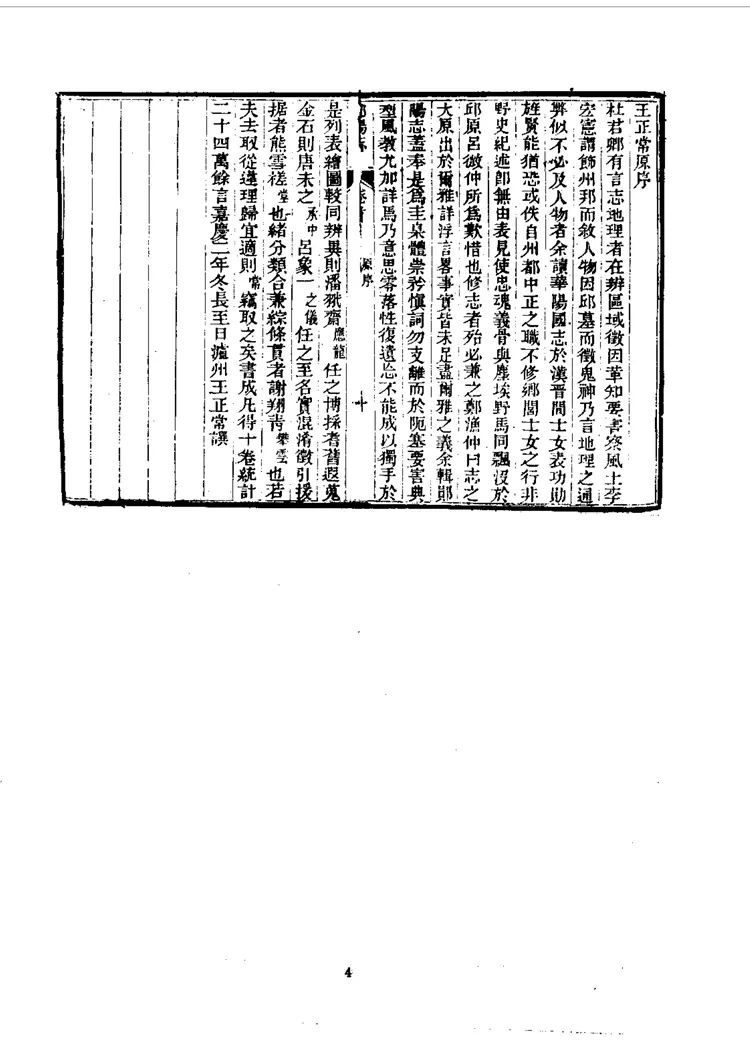 王正常原序
杜君卿有言志地理者在辨區域徵因革知要害察風土李
宏憲謂飾州邦而敘人物因邱墓而徵鬼神乃言地理之通
弊似不必及人物者余讀華陽國志於漢晉間士女表功勛
旌賢能猶恐或佚自州都中正之職不修鄉閭士女之行非
野史紀述卽無由表見使忠魂義骨與塵埃野馬同飄沒於
邱原呂微仲所爲歎惜也修志者殆必兼之鄭漁仲曰志之
大原出於爾雅詳浮言畧事實皆未足盡爾雅之義余輯鄖
陽志蓋奉是爲圭臬體崇矜愼詞勿支離而於阨塞要害典
型風教尤加詳焉乃意思零落性復遺忘不能成以獨手於
鄖陽志 卷首 原序 十
是列表繪圖較同辨異則潘 齋應龍任之博採耆舊遐蒐
金石則唐未之承中呂象一之儀任之至名實混淆徵引援
据者熊雪槎堂也緒分類合兼綜條貫者謝翔靑攀雲也若
夫去取從違理歸宜適則常竊取之矣書成凡得十卷統計
二十四萬餘言嘉慶二年冬長至日瀘州王正常譔
4